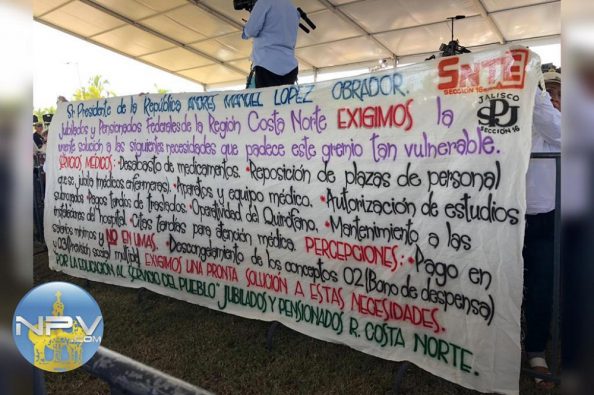 Sr. Presidente de la República ANDRÉS MANUEL LÓPEZ OBRADOR.
Jubilados y Pensionados Federales de la Región Costa Norte EXIGIMOS la
mente solución a las siguientes necesidades que padece este gremio tan vulnerable.
SERVICIOS MEDICOS: Desabasto de medicamentos. Reposición de plazas de personal
que se jubila (médicos, enfermeras). Aparatos y equipo médico. Autorización de estudios
subrogados. Pagos tardíos de traslados. Operatividad del Quirófano. Mantenimiento a las
instalaciones del hospital. Citas tardías para atención médica. PERCEPCIONES: Pago en
salarios mínimos y NO EN UMAS. Descongelamiento de los conceptos 02 (Bono de despensa)
y 03 (Previsión social multiple) EXIGIMOS UNA PRONTA SOLUCIÓN A ESTAS NECESIDADES.
"POR LA EDUCACIÓN AL SERVICIO DEL PUEBLO" JUBILADOS Y PENSIONADOS R. COSTA NORTE.
SNTE
SECCIÓN 16
JALISCO
SECCIÓN 16
NPV
.COM